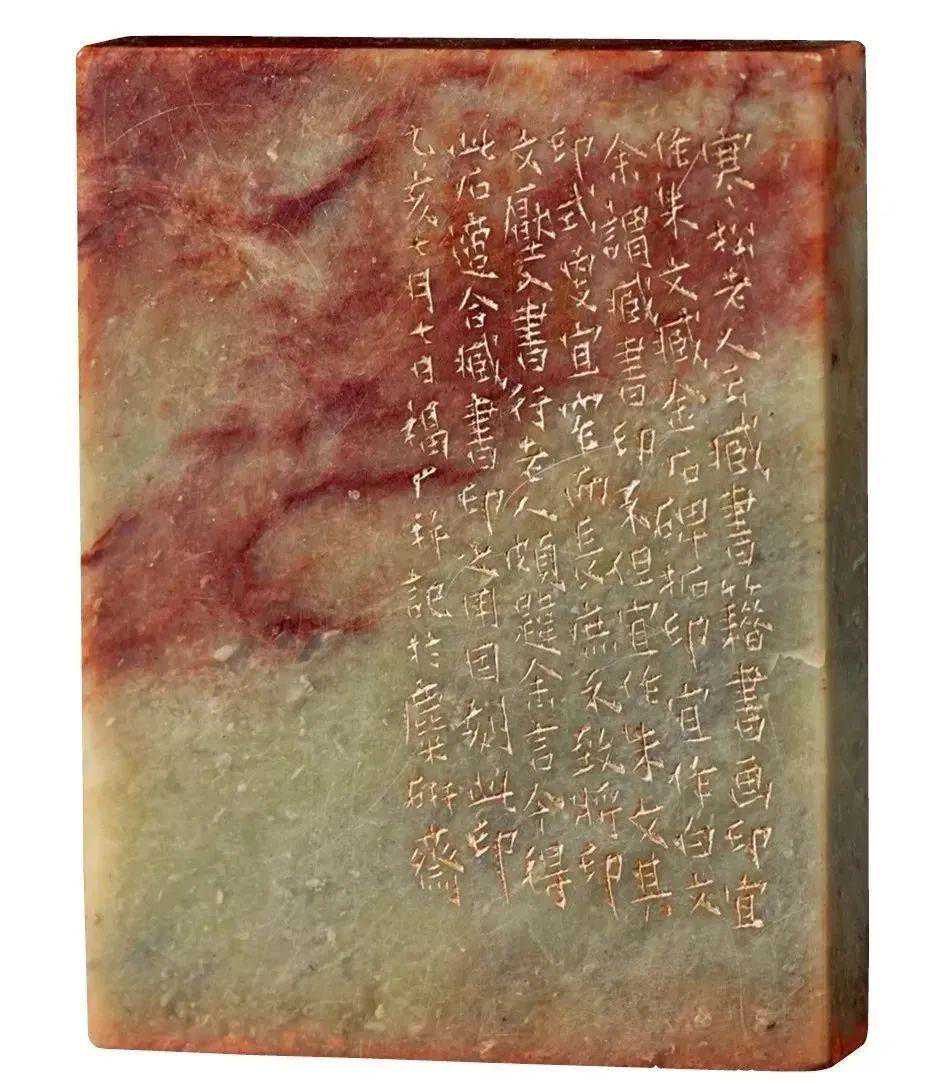 寒松老人云藏書籍書画印宜
作朱文藏金石碑拓印宜作白文
余謂藏書印不但宜作朱文其
印式更宜窄而長庶不致將印
文壓書行老人頗韙余言今得
此石適合藏書印之用因刻此印
乙亥七月七日福厂并記於麋研齋